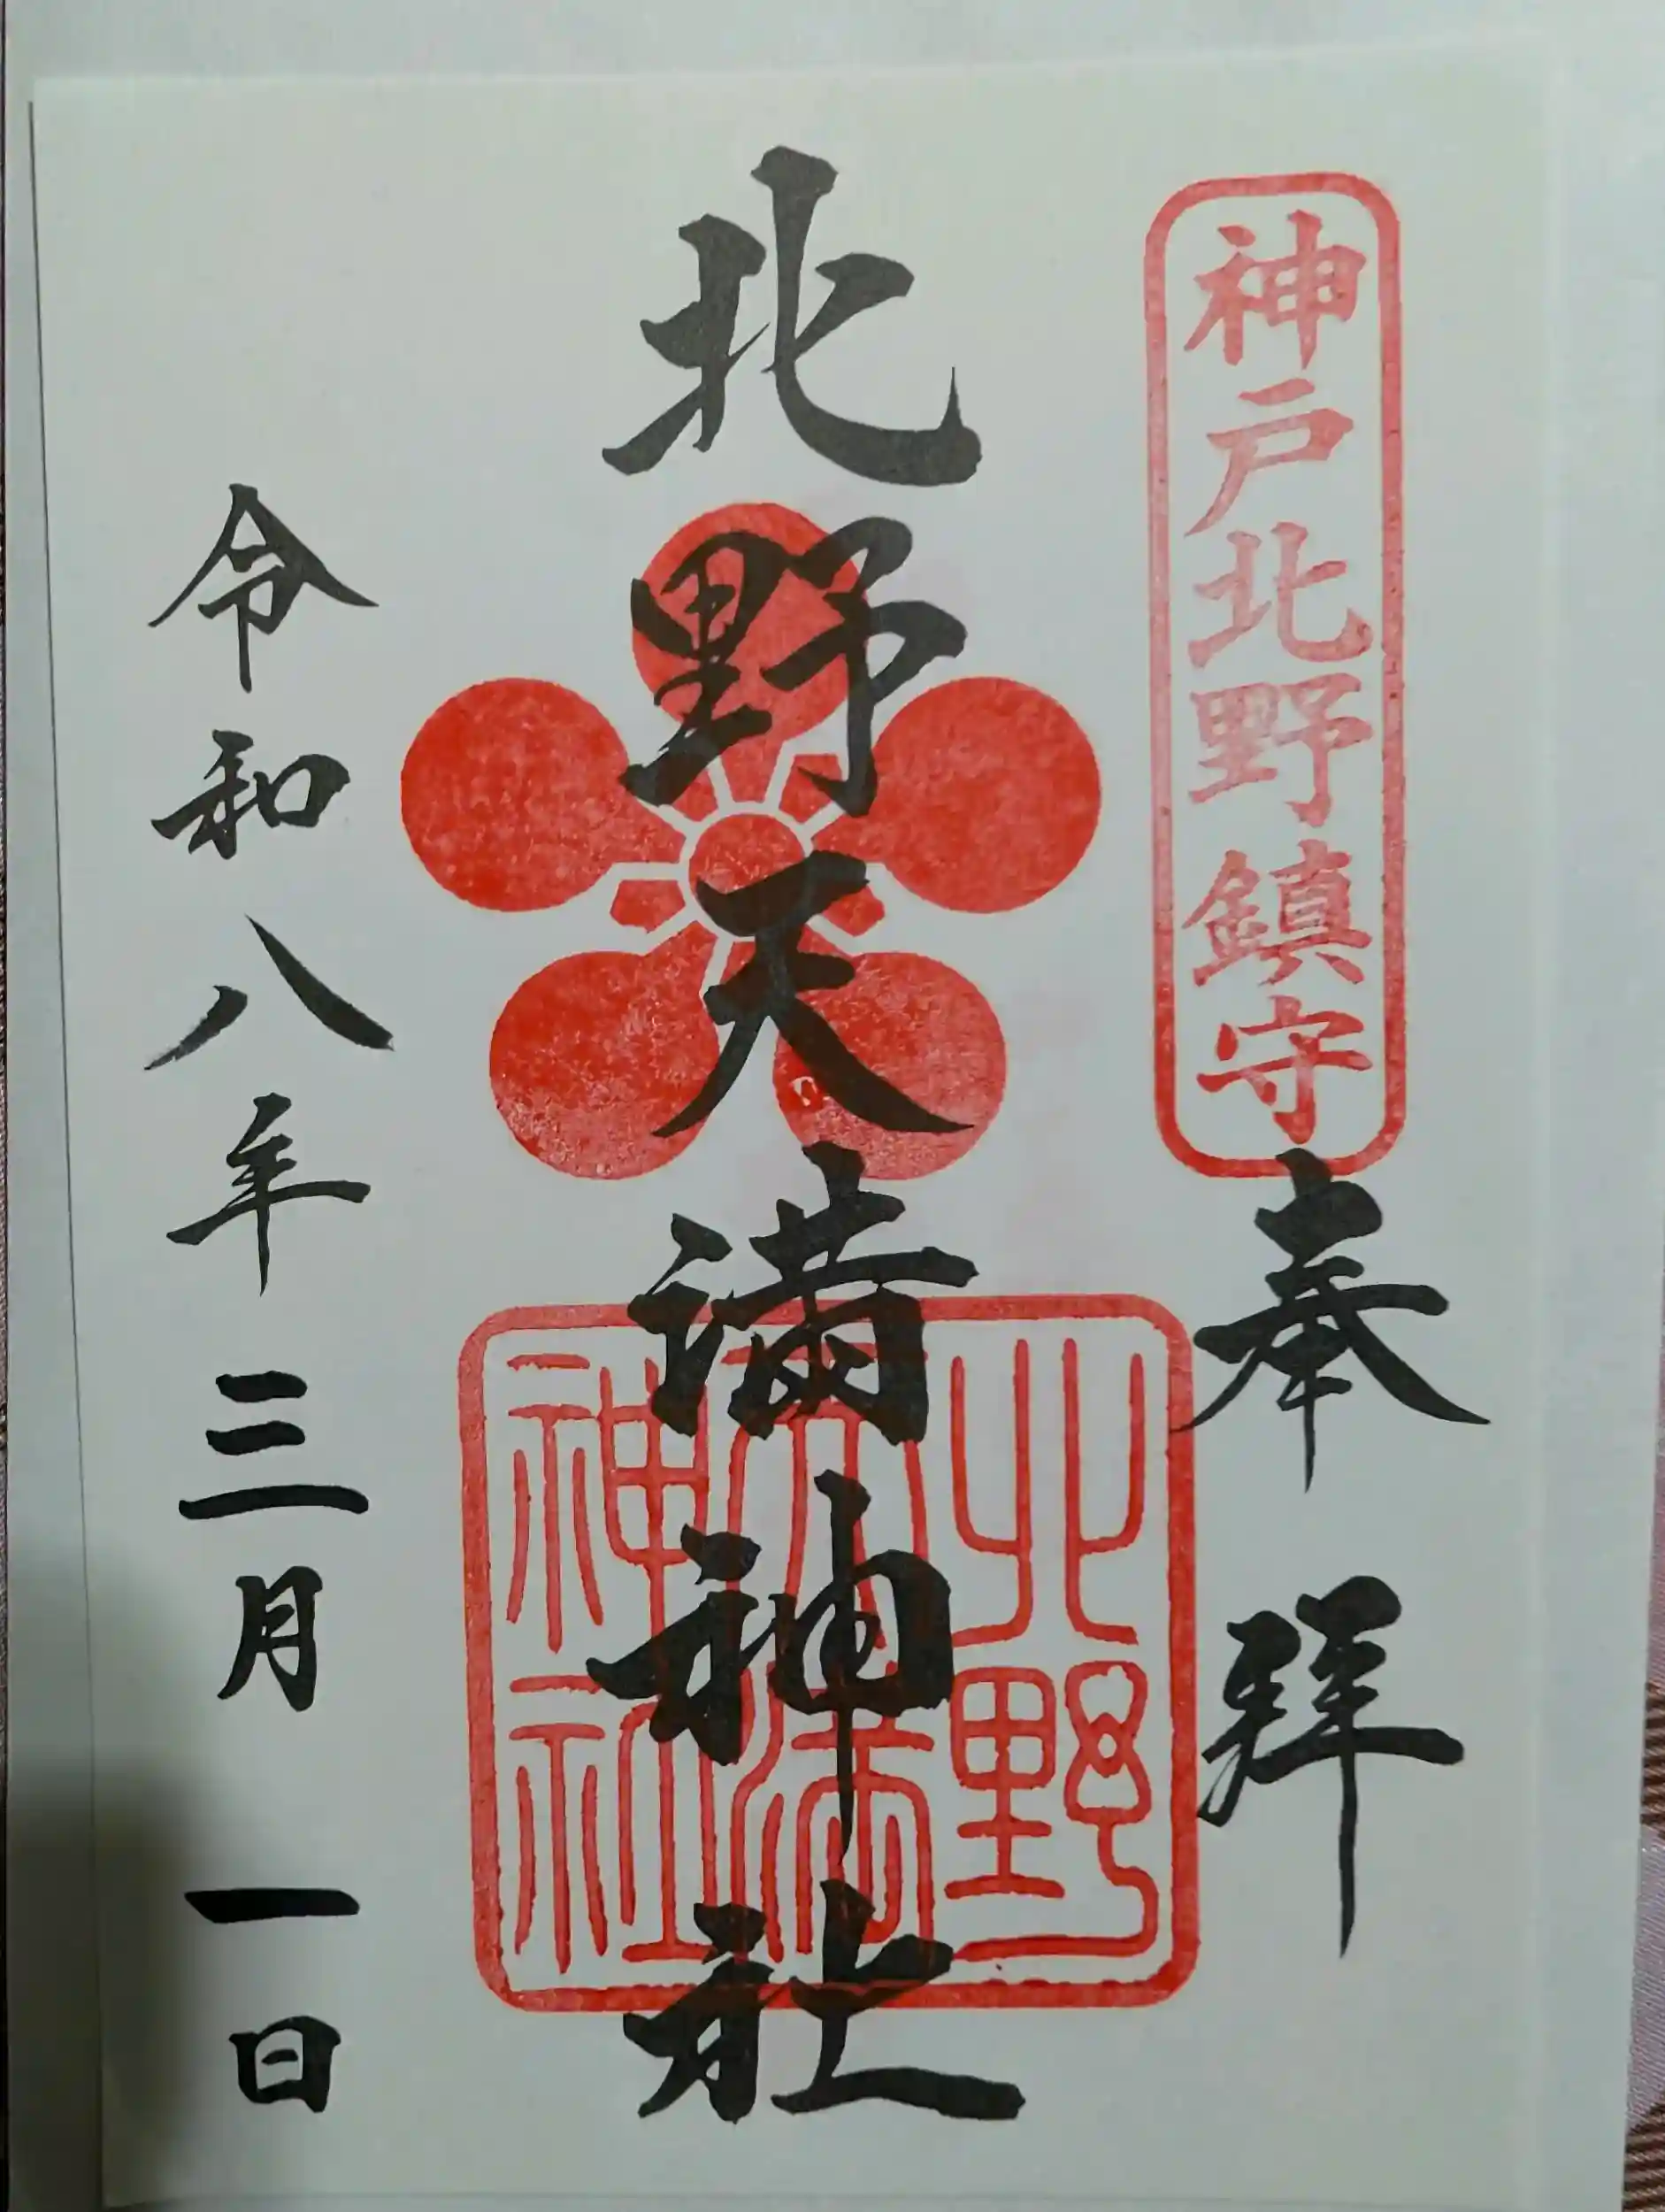 神戸北野鎮守
奉拜
北野天満神社
北野
天満
神社
令和八年三月一日